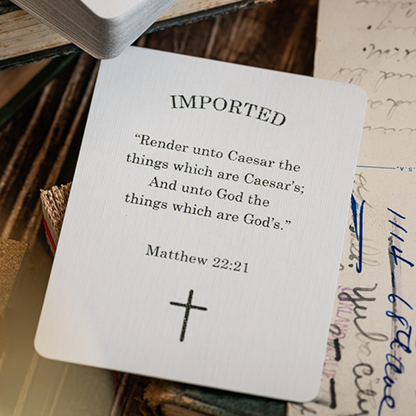 IMPORTED
“Render unto Caesar the
things which are Caesar’s;
And unto God the
things which are God’s.”
Matthew 22:21